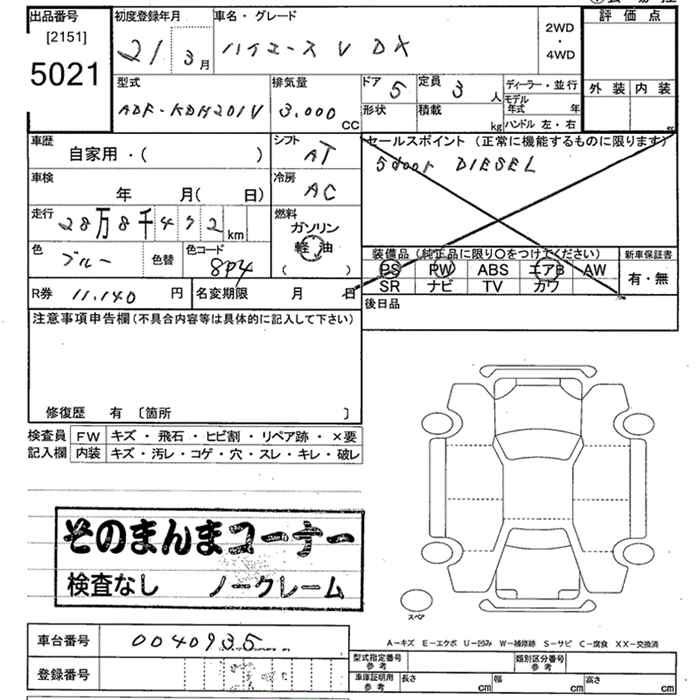 出品番号 初度登録年月 車名・グレード 評価点
[2151]
5021 21 3月 ハイエース V DX 2WD・4WD
型式 排気量 ドア 5 定員 3 人 ディーラー・並行 外装 内装
ADF-KDH201V 3.000 CC 形状 積載 kg モデル年式 年
ハンドル 左・右
車歴 シフト セールスポイント (正常に機能するものに限ります)
自家用・( ) AT 5door DIESEL
車検 冷房
年 月( 日) AC
走行 燃料
28万8千492 km ガソリン
軽油
( )
色 ブルー 色替 色コード 8P4
装備品 (純正品に限り○をつけてください) 新車保証書
PS PW ABS エアB AW 有・無
SR ナビ TV カワ
R券 11.140 円 名変期限 月 日
後日品
注意事項申告欄 (不具合内容等は具体的に記入して下さい)
修復歴 有 〔箇所 〕
検査員 FW キズ・飛石・ヒビ割・リペア跡・×要
記入欄 内装 キズ・汚レ・コゲ・穴・スレ・キレ・破レ
そのまんまコーナー
検査なし ノークレーム
スペア
車台番号 0040935
A-キズ E-エクボ U-凹み W-補修跡 S-サビ C-腐食 XX-交換済
登録番号
型式指定番号 参考 類別区分番号 参考
車庫証明用 参考 長さ cm 幅 cm 高さ cm